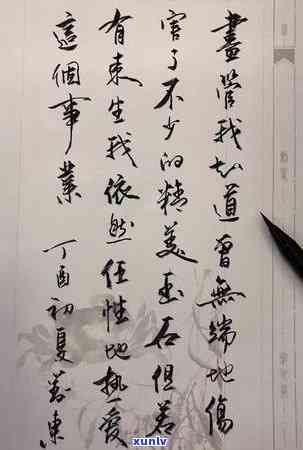 畫管我知道曾無端地傷
害了不少的精美玉石但若
有來生我依然任性地热愛
這個事業 丁酉初夏 東
xunlv